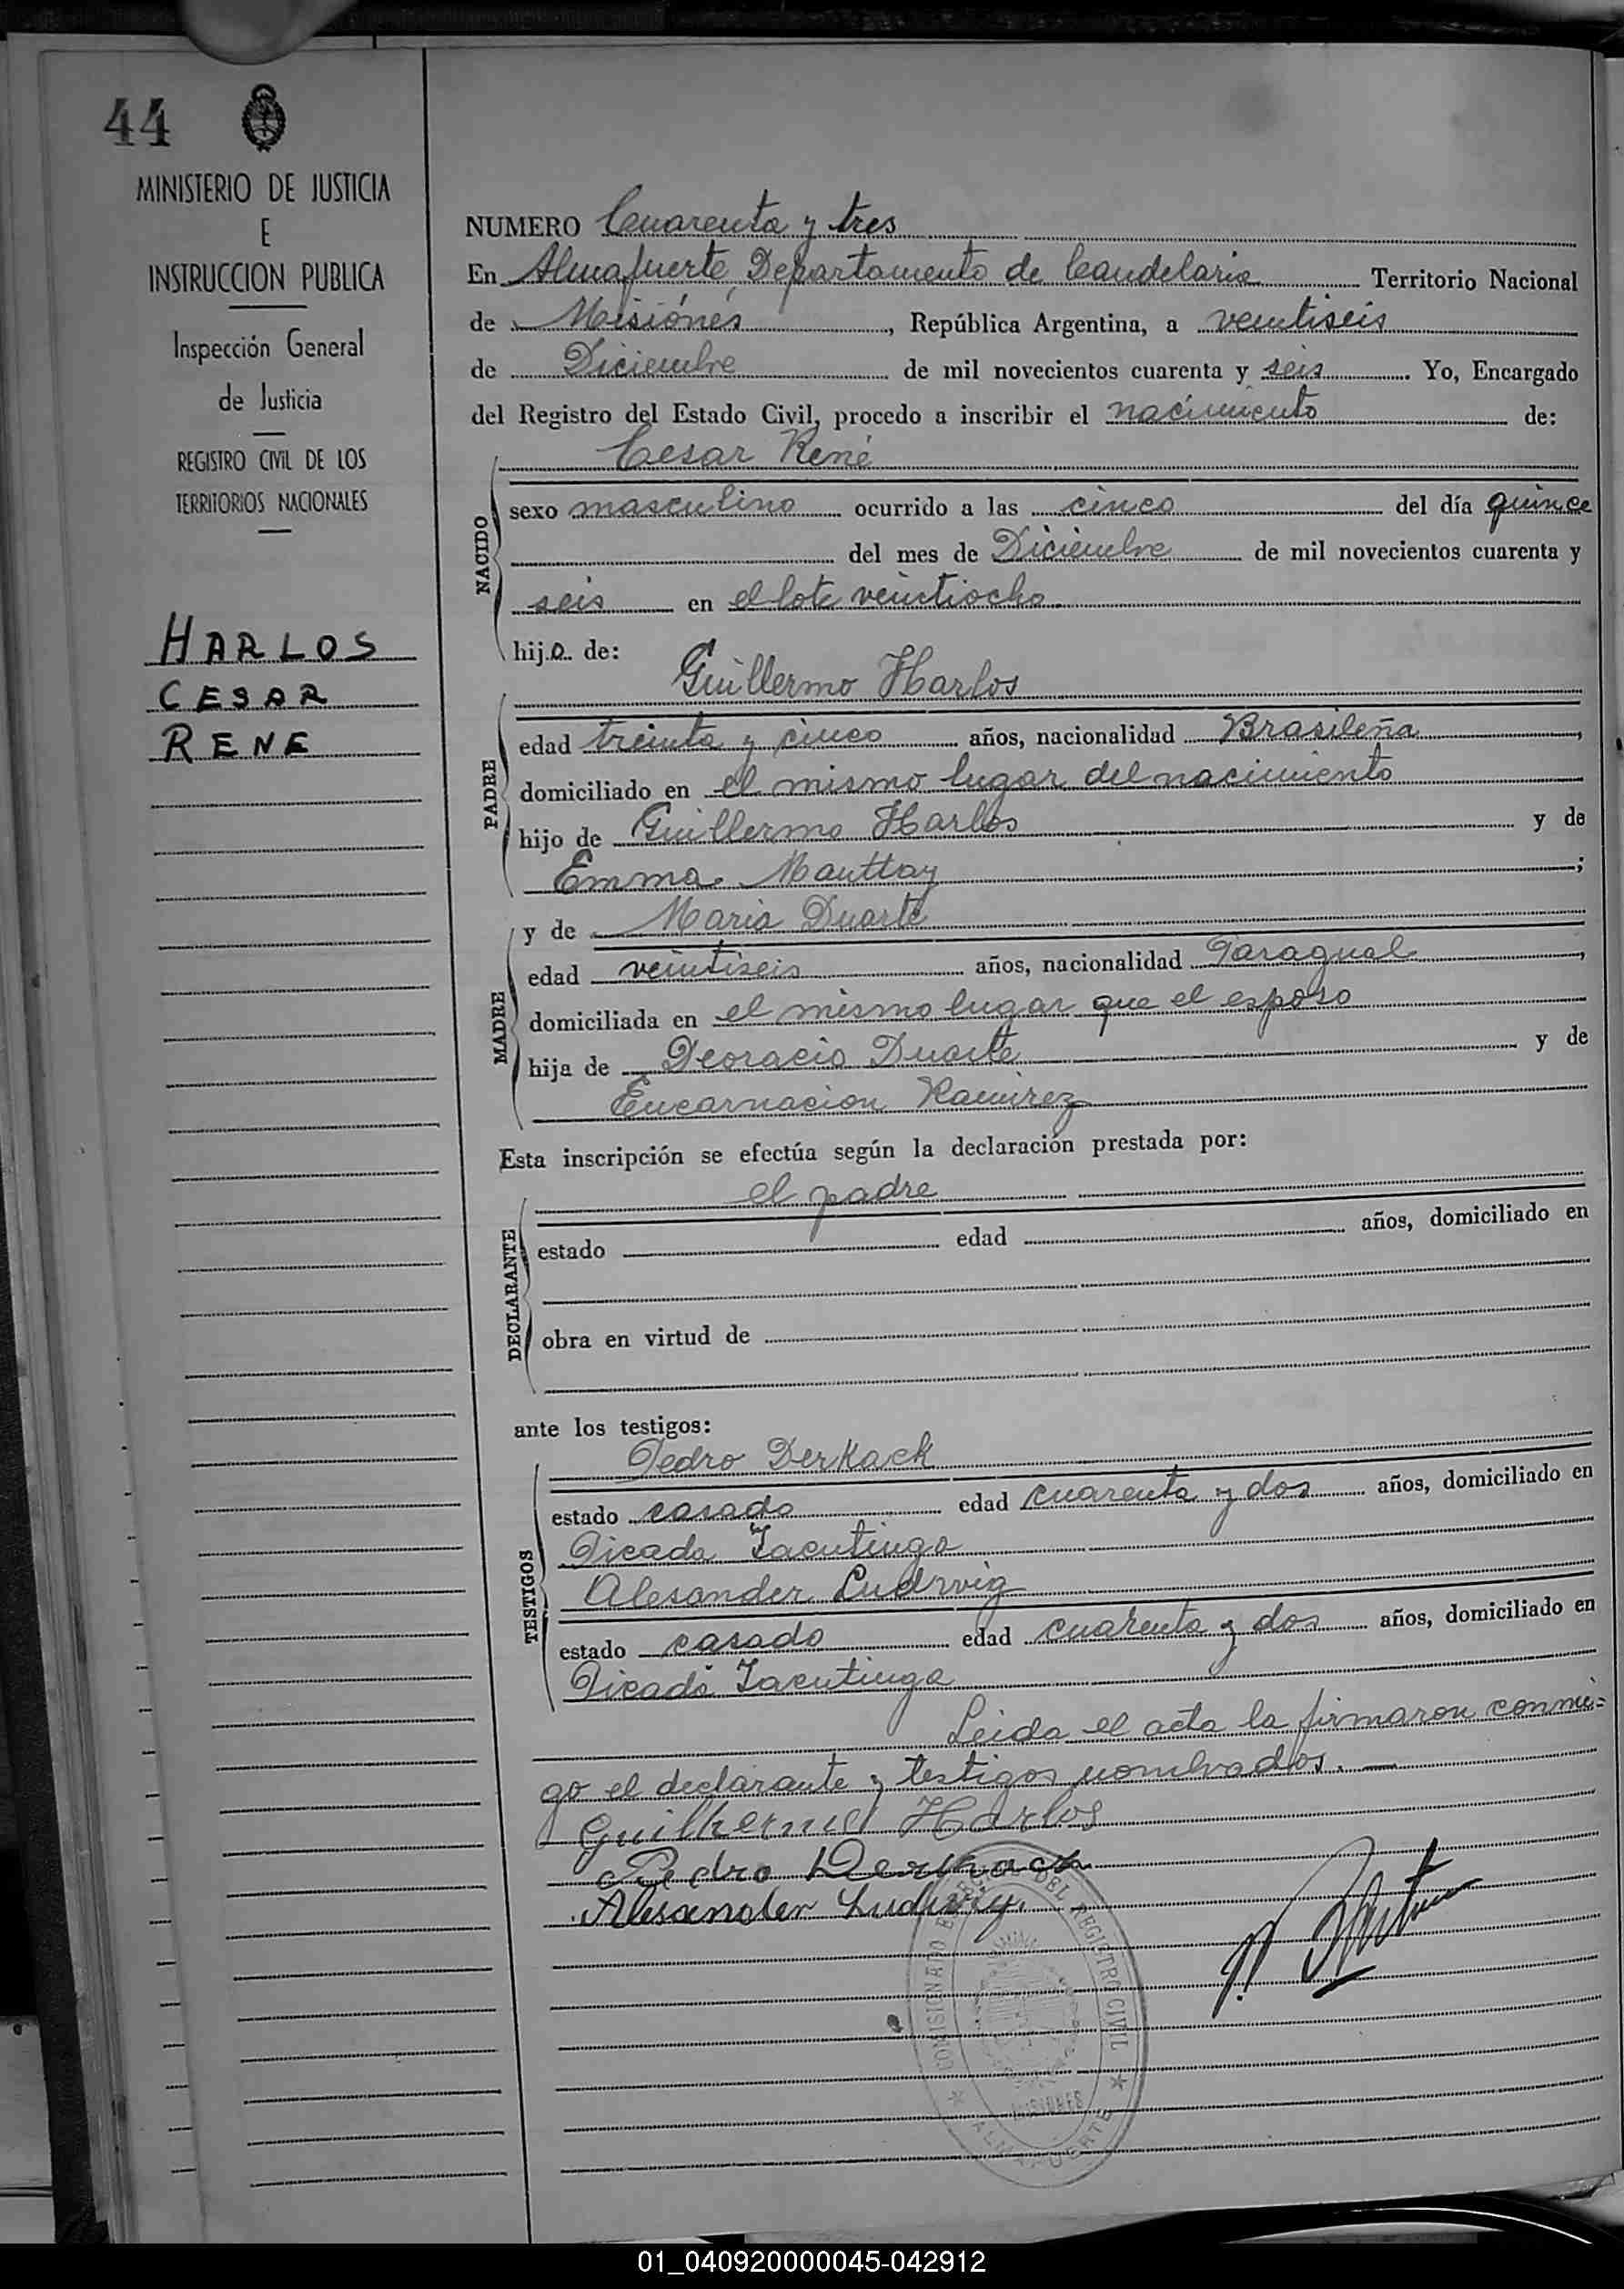 44
MINISTERIO DE JUSTICIA
E
INSTRUCCION PUBLICA
Inspección General
de Justicia
REGISTRO CIVIL DE LOS
TERRITORIOS NACIONALES
HARLOS
CESAR
RENE
NUMERO Cuarenta y tres
En Almafuerte, Departamento de Candelaria Territorio Nacional
de Misiónes, República Argentina, a veintiseis
de Diciembre de mil novecientos cuarenta y seis Yo, Encargado
del Registro del Estado Civil, procedo a inscribir el nacimiento de:
Cesar René
NACIDO
sexo masculino ocurrido a las cinco del día quince
del mes de Diciembre de mil novecientos cuarenta y
seis en el lote veintiocho
hijo de:
Guillermo Harlos
PADRE
edad treinta y cinco años, nacionalidad Brasileña,
domiciliado en el mismo lugar del nacimiento
hijo de Guillermo Harlos y de
Emma ;
y de Maria Duarte
MADRE
edad veintiseis años, nacionalidad Paragual,
domiciliada en el mismo lugar que el esposo
hija de Deoracio Duarte y de
Encarnacion Ramirez
Esta inscripción se efectúa según la declaración prestada por:
el padre
DECLARANTE
estado edad años, domiciliado en
obra en virtud de
ante los testigos:
Pedro Derkach
TESTIGOS
estado casado edad cuarenta y dos años, domiciliado en
Picada Yacutinga
Alesander Ludwig
estado casado edad cuarenta y dos años, domiciliado en
Picada Yacutinga
Leida el acta la firmaron conmi=
go el declarante y testigos nombrados. —
Guilherme Harlos
Pedro Derkach
Alesander Ludwig.
COMISIONADO DEL REGISTRO CIVIL
MISIONES
* ALMAFUERTE *
01_040920000045-042912